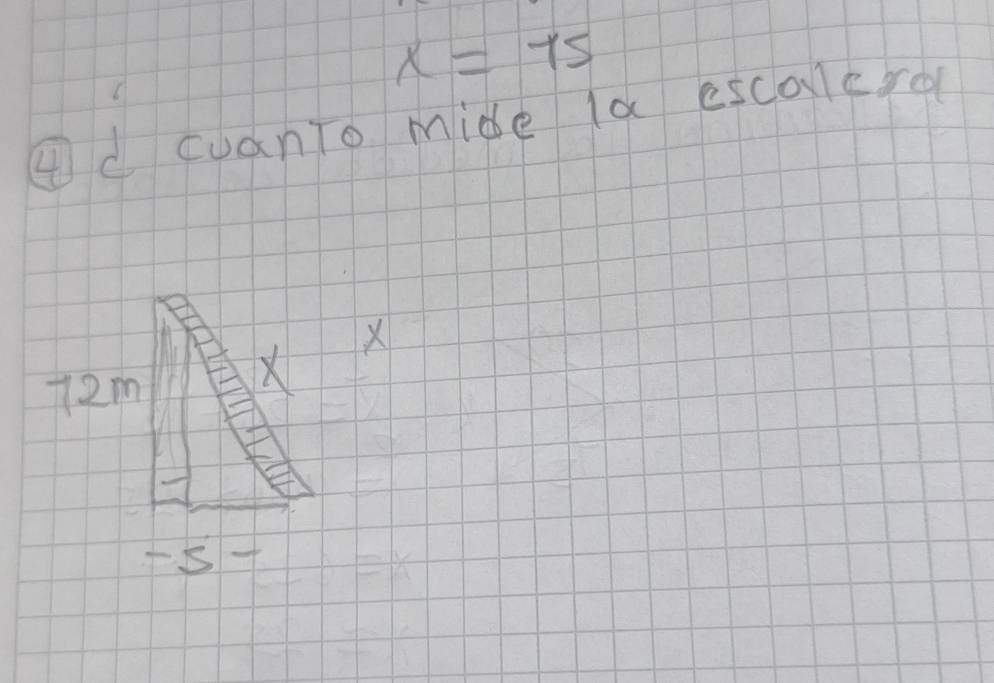 x = 15
④ ¿ cuanto mide la escalera
x
x
12m
- 5 -